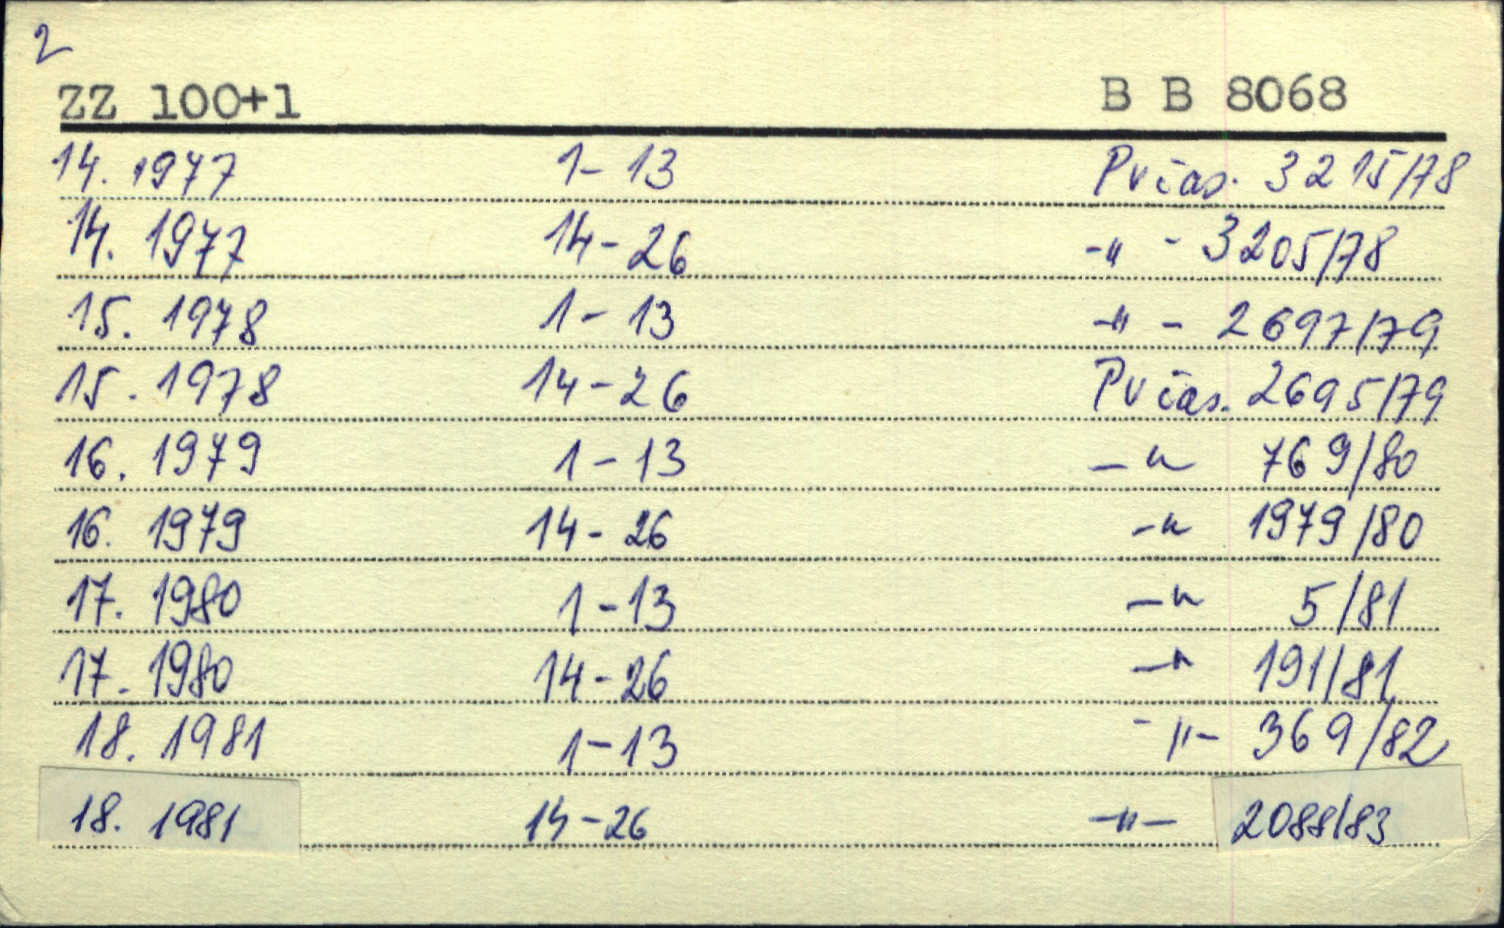 2
ZZ 100+1 B B 8068
14. 1977 1-13 Pv čas. 3215/78
14. 1977 14-26 -"- 3205/78
15. 1978 1-13 -"- 2697/79
15. 1978 14-26 Pv čas. 2695/79
16. 1979 1-13 -"- 769/80
16. 1979 14-26 -"- 1979/80
17. 1980 1-13 -"- 5/81
17. 1980 14-26 -"- 191/81
18. 1981 1-13 -"- 369/82
18. 1981 14-26 -"- 2088/83